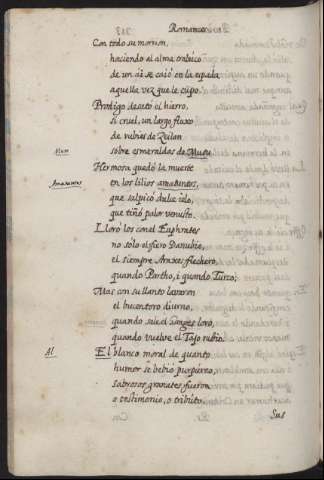 Romances
Con todo su morrion,
haciendo al alma trabuco
de un ai se caió en la espada
aquella vez que le cupo.
Prodigo desató el hierro,
si cruel, un largo fluxo
de rubies de Zeilan
sobre esmeraldas de Muso.
Hermosa quedó la muerte
en los lilios amatuntos,
que salpicó dulce ielo,
que tiñó palor venusto.
Lloró los con el Euphrates
no solo el fiero Danubio,
el siempre Araxes flechero,
quando Partho, i quando Turco;
Mas con su llanto lavaron
el bucentoro diurno,
quando sale, el Ganges loro,
quando vuelve, el Tajo rubio.
Al
El blanco moral de quanto
humor se bebió purpureo,
sabrosos granates fueron
o testimonio, o tributo.
Sus